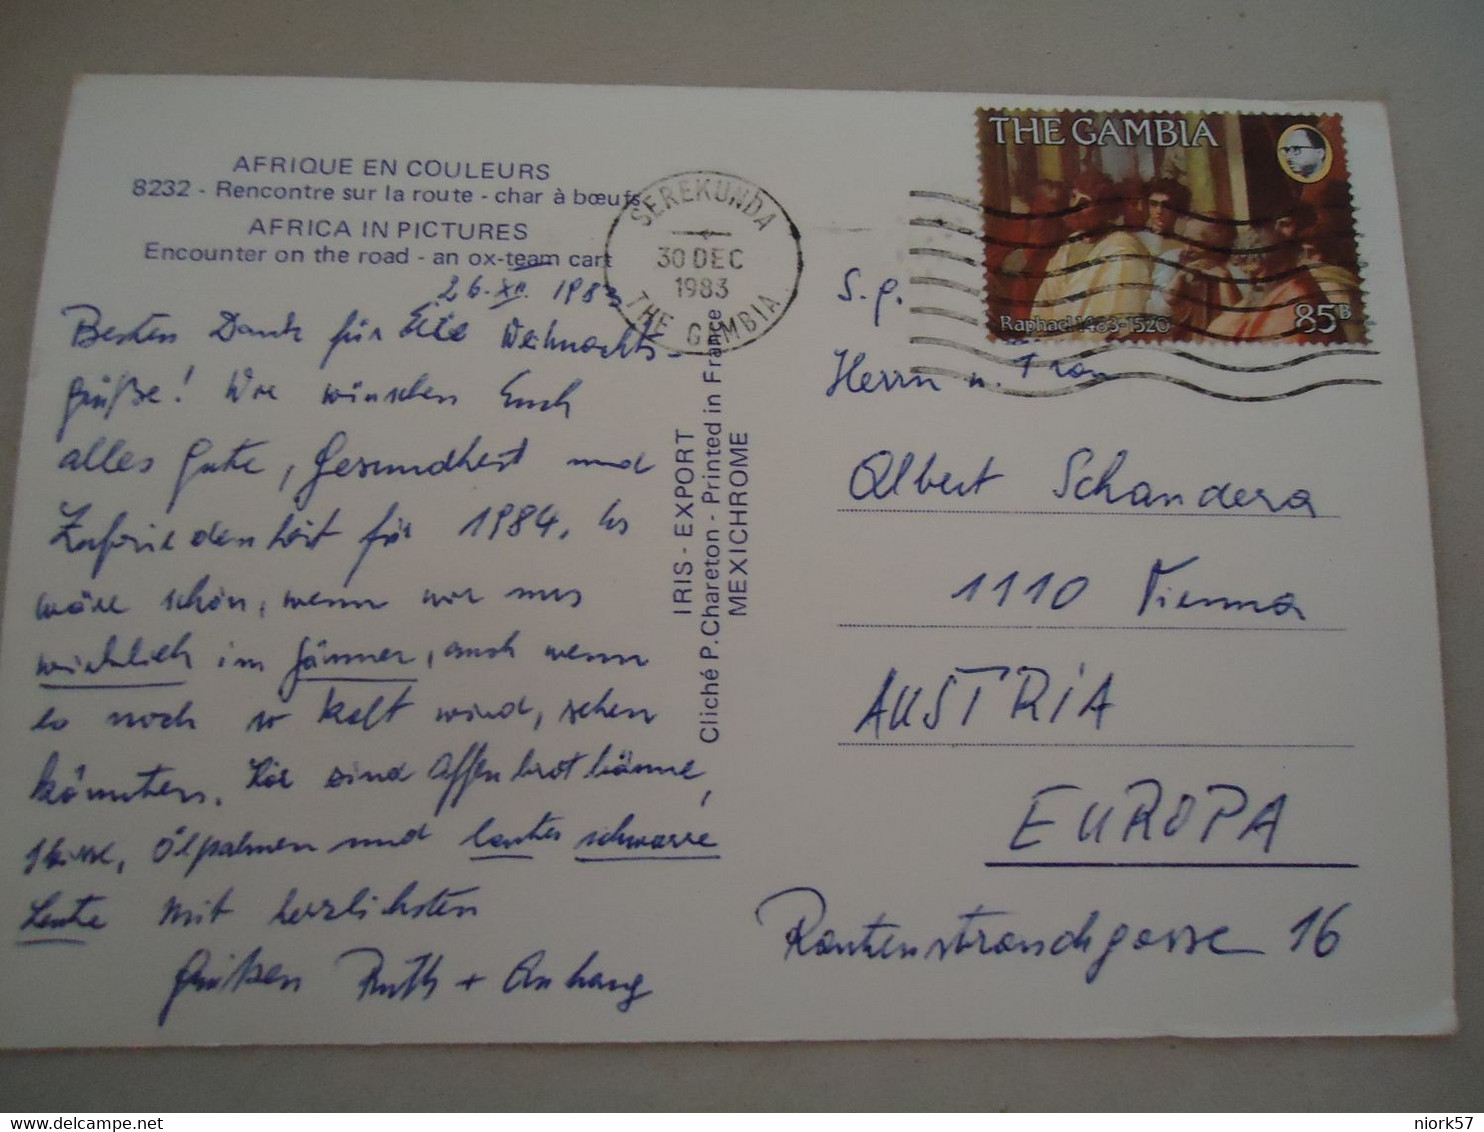 AFRIQUE EN COULEURS
8232 - Rencontre sur la route - char à bœufs
AFRICA IN PICTURES
Encounter on the road - an ox-team cart
26. XII. 1983
Besten Dank für Eure Weihnachts-
grüße! Wir wünschen Euch
alles Gute, Gesundheit und
Zufriedenheit für 1984. Es
wäre schön, wenn wir uns
wirklich im Jänner, auch wenn
es noch so kalt wird, sehen
könnten. Hier sind Affenbrotbäume,
Ölpalmen und lauter schwarze
Leute Mit herzlichsten
Grüßen Ruth + Anhang
SEREKUNDA
30 DEC
1983
THE GAMBIA
IRIS - EXPORT
Cliché P. Chareton - Printed in France
MEXICHROME
THE GAMBIA
Raphael 1483-1520
85B
S. g.
Herrn u. Frau
Albert Schandera
1110 Vienna
AUSTRIA
EUROPA
Rautenstrauchgasse 16
niork57